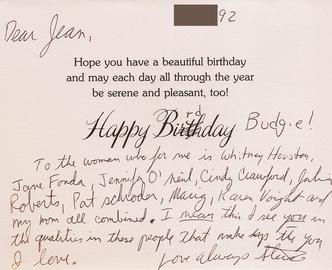 92
Dear Jean,
Hope you have a beautiful birthday
and may each day all through the year
be serene and pleasant, too!
rd
Happy Birthday Budgie!
To the woman who for me is Whitney Houston,
Jane Fonda, Jennifer O'Neil, Cindy Crawford, Julia
Roberts, Pat Schroder, Maria, Karen Voight and
my mom all combined. I mean this I see you in
the qualities in these people that make the you
I love. Love always